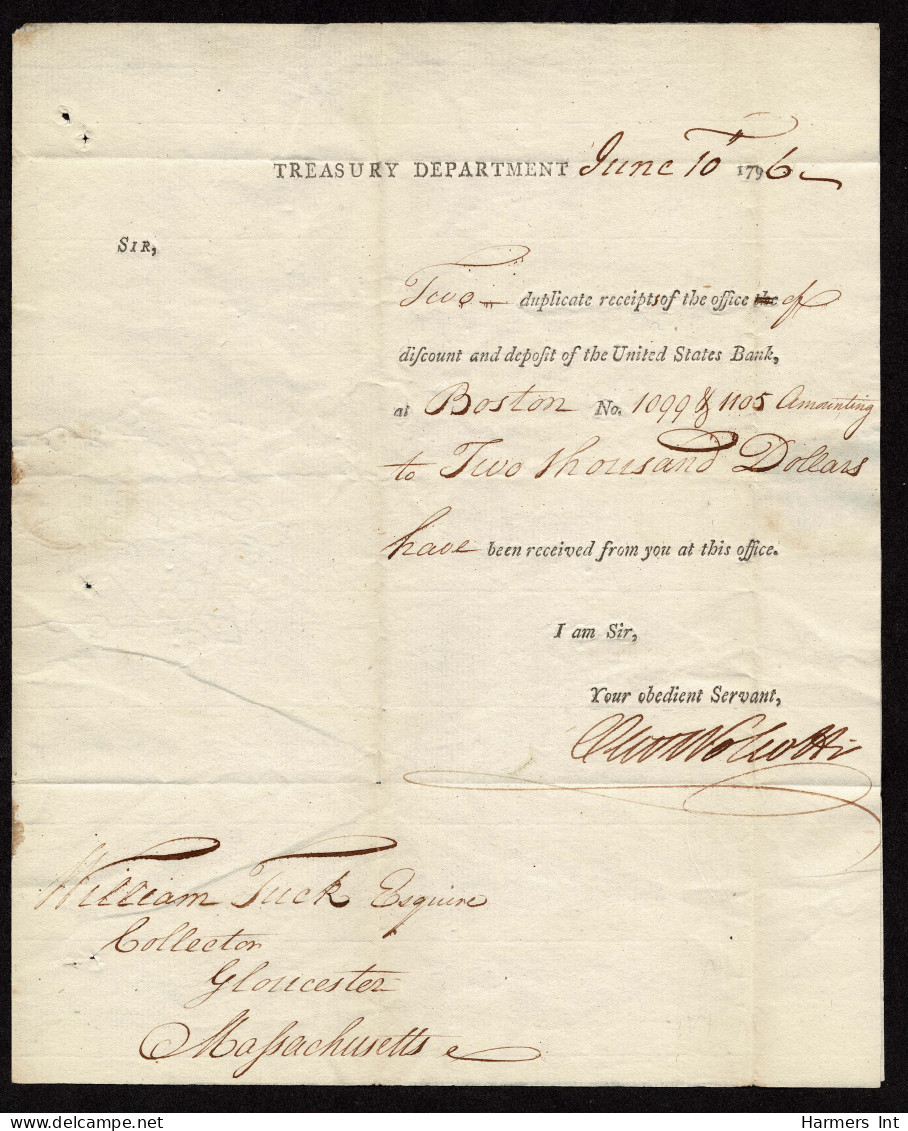 TREASURY DEPARTMENT June 10th 1796
SIR,
Two duplicate receipts of the office the of
diſcount and depoſit of the United States Bank,
at Boston No. 1099 & 1105 Amounting
to Two thousand Dollars
have been received from you at this office.
I am Sir,
Your obedient Servant,
Oliv Wolcott Jr
William Tuck Esquire
Collector
Gloucester
Maſsachusetts
Harmers Int